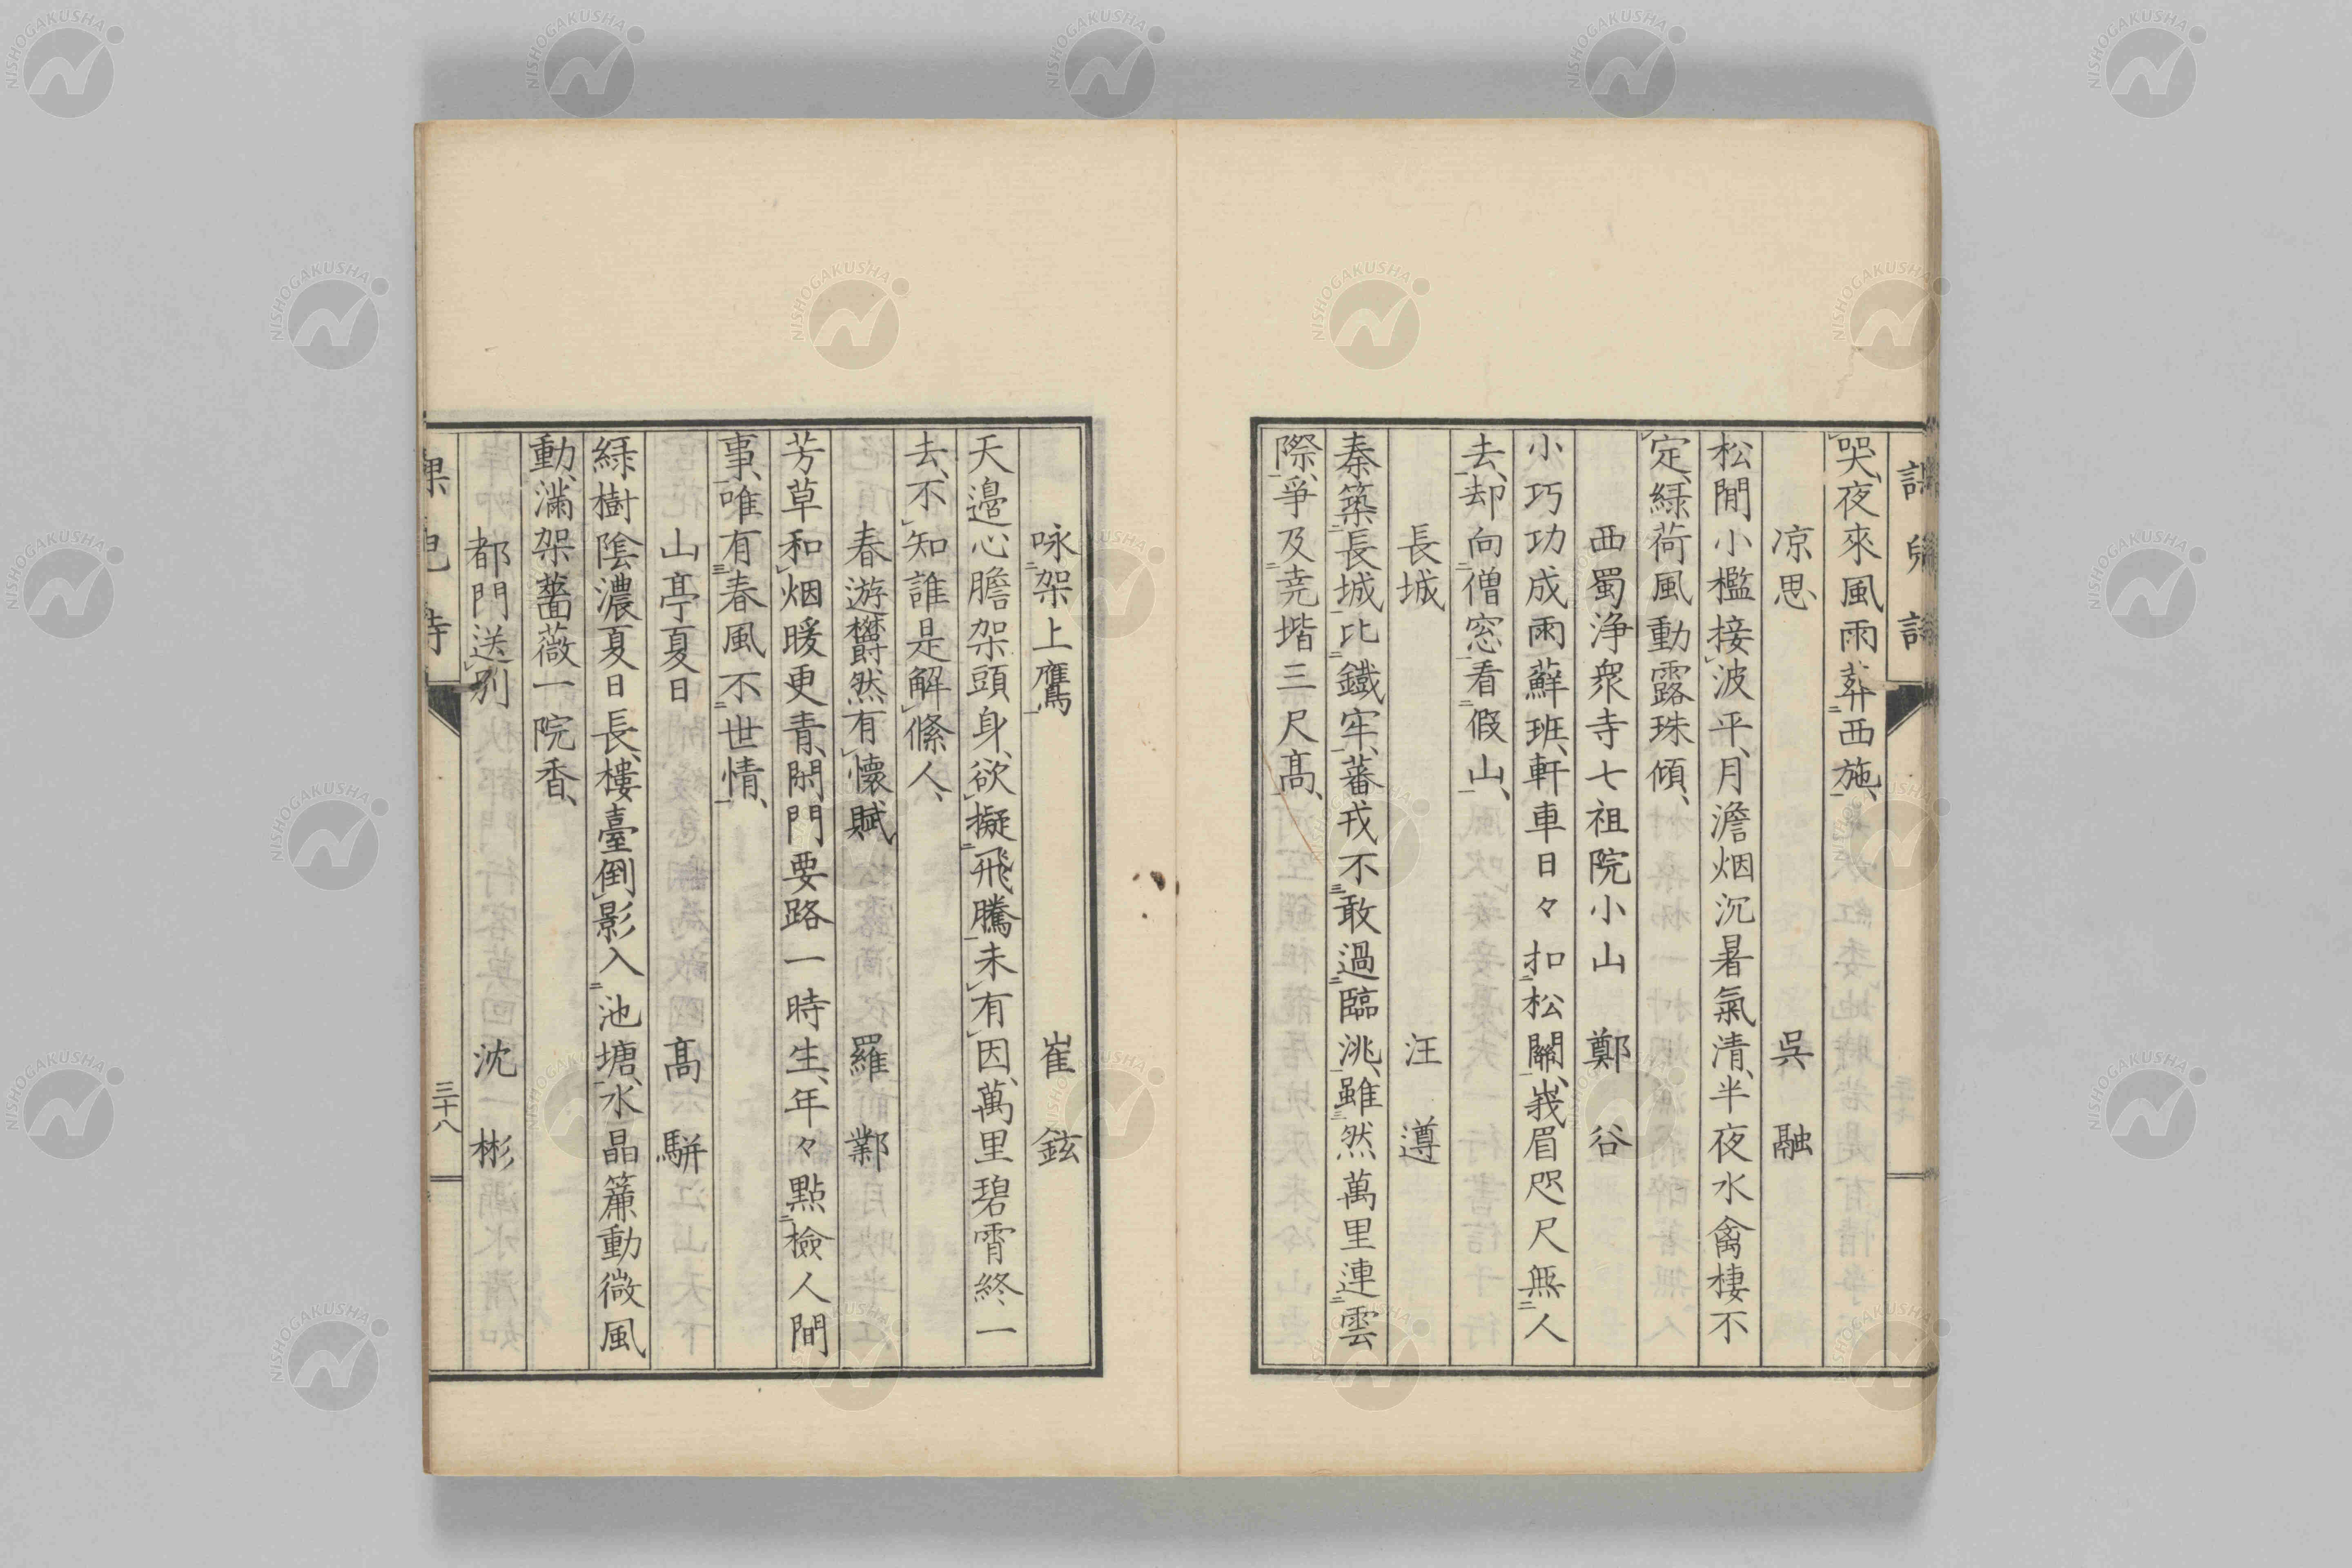 哭、夜來風雨葬西施、
凉思　吳融
松間小檻接波平、月澹烟沉暑氣清、半夜水禽棲不
定、緑荷風動露珠傾、
西蜀浄衆寺七祖院小山　鄭谷
小巧功成雨蘚班、軒車日々扣松關、峩眉咫尺無人
去、却向僧窓看假山、
長城　汪遵
秦築長城比鐵牢、蕃戎不敢過臨洮、雖然萬里連雲
際、爭及堯堦三尺髙、
咏架上鷹　崔鉉
天邉心膽架頭身、欲擬飛騰未有因、萬里碧霄終一
去、不知誰是解絛人、
春游欝然有懷賦　羅鄴
芳草和烟暖更青、閑門要路一時生、年々點檢人間
事、唯有春風不世情、
山亭夏日　髙駢
緑樹陰濃夏日長、樓臺倒影入池塘、水晶簾動微風
動、滿架薔薇一院香、
都門送別　沈彬
三十八
NISHOGAKUSHA